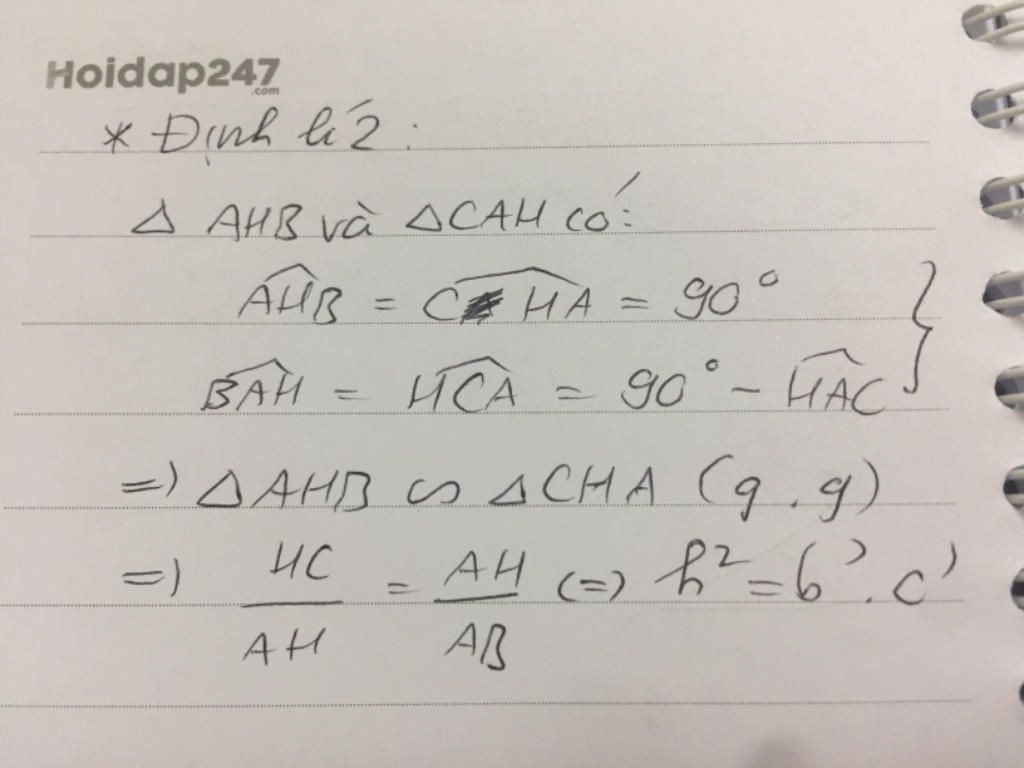 Hoidap247
.com
* Định lí 2:
Δ AHB và ΔCAH có:
AHB = CHA = 90°
BAH = HCA = 90° - HAC }
=) ΔAHB ∽ ΔCHA (g.g)
=) HC/AH = AH/AB (=) h² = b'.c'